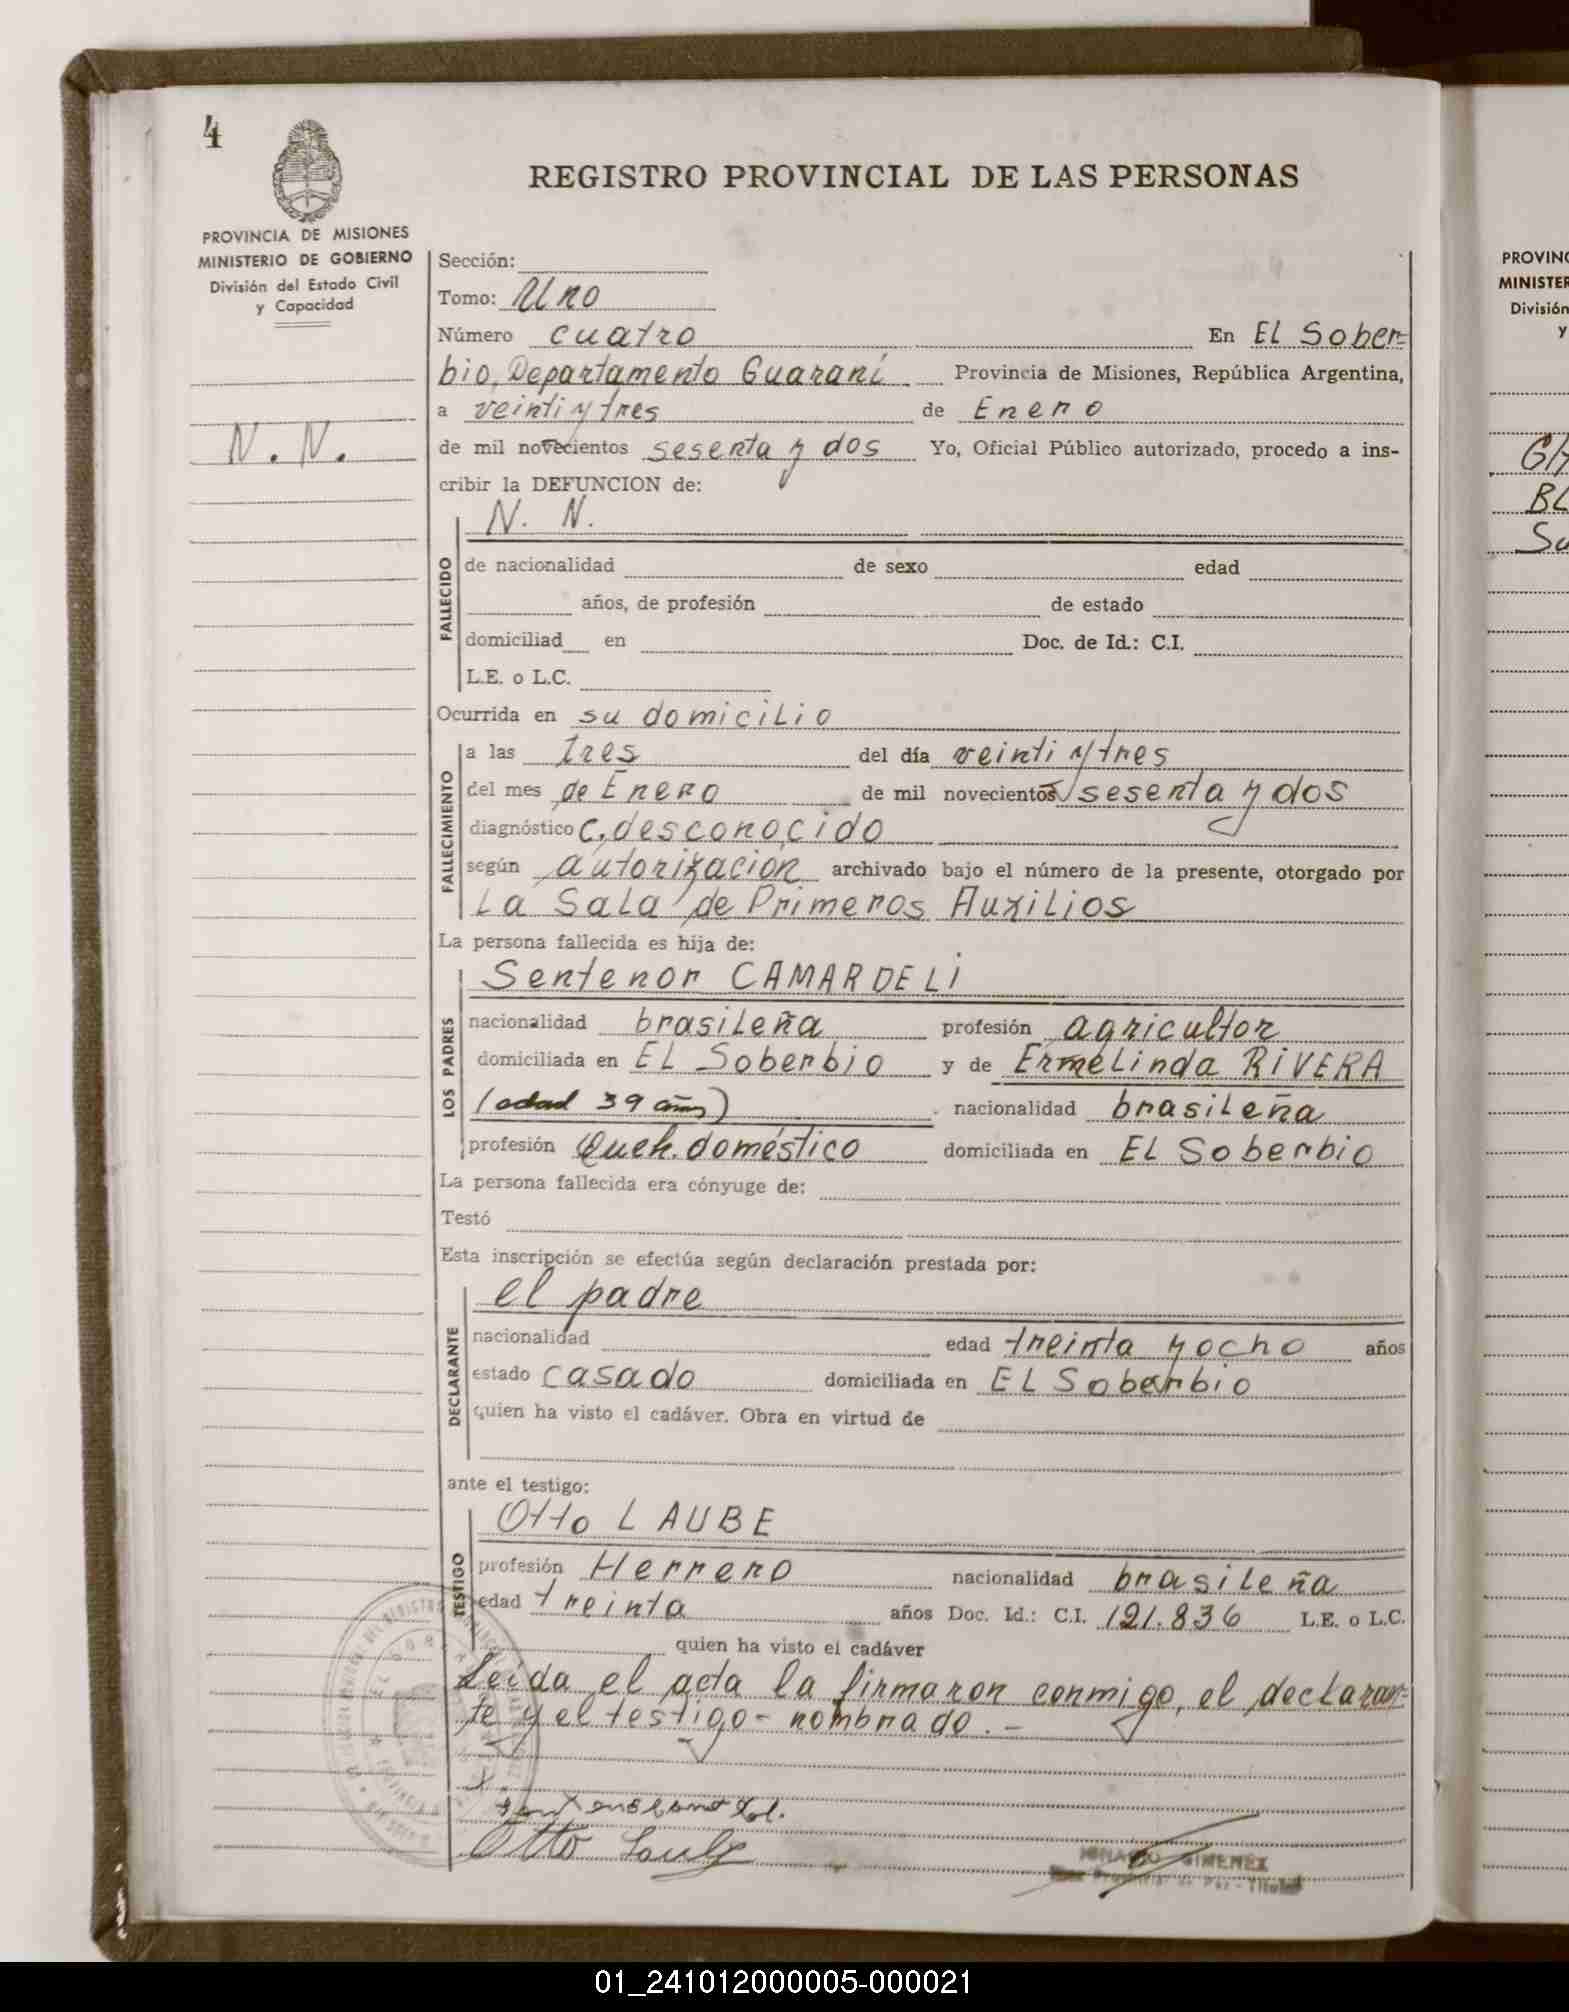 4
REGISTRO PROVINCIAL DE LAS PERSONAS
PROVINCIA DE MISIONES
MINISTERIO DE GOBIERNO
División del Estado Civil
y Capacidad
N. N.
Sección:
Tomo: Uno
Número cuatro En EL Sober=
bio, Departamento Guaraní Provincia de Misiones, República Argentina,
a veinti y tres de Enero
de mil novecientos sesenta y dos Yo, Oficial Público autorizado, procedo a ins-
cribir la DEFUNCION de:
N. N.
FALLECIDO
de nacionalidad de sexo edad
años, de profesión de estado
domiciliad en Doc. de Id.: C.I.
L.E. o L.C.
Ocurrida en su domicilio
FALLECIMIENTO
a las tres del día veinti y tres
del mes de Enero de mil novecientos sesenta y dos
diagnóstico C. desconocido
según autorizacion archivado bajo el número de la presente, otorgado por
La Sala de Primeros Auxilios
La persona fallecida es hija de:
LOS PADRES
Sentenor CAMARDELI
nacionalidad brasileña profesión agricultor
domiciliada en EL Soberbio y de Ermelinda RIVERA
(edad 39 años) nacionalidad brasileña
profesión Queh. doméstico domiciliada en EL Soberbio
La persona fallecida era cónyuge de:
Testó
Esta inscripción se efectúa según declaración prestada por:
DECLARANTE
el padre
nacionalidad edad treinta y ocho años
estado casado domiciliada en EL Soberbio
quien ha visto el cadáver. Obra en virtud de
ante el testigo:
TESTIGO
Otto LAUBE
profesión Herrero nacionalidad brasileña
edad treinta años Doc. Id.: C.I. 121.836 L.E. o L.C.
quien ha visto el cadáver
Leida el acta la firmaron conmigo, el declaran=
te y el testigo - nombrado. -
Otto
IGNACIO GIMENEZ
PROVINC
MINISTER
División
y
BL
01_241012000005-000021